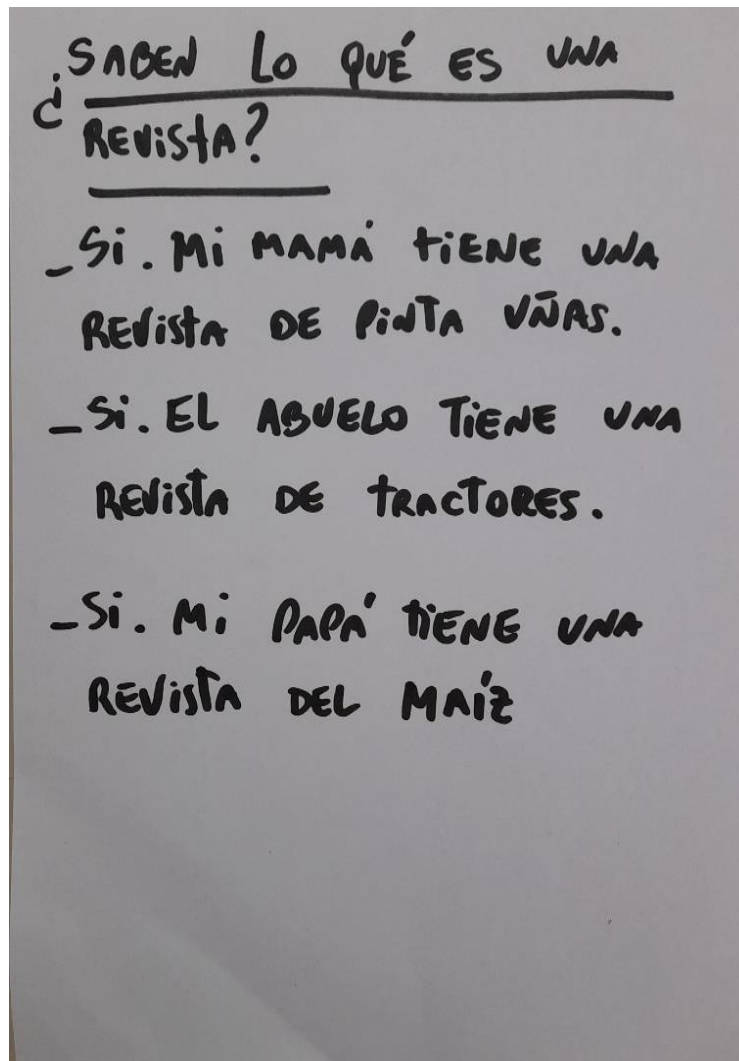 ¿SABEN LO QUÉ ES UNA
REVISTA?
_Si. Mi MAMÁ tiENE UNA
REVista DE PiNTA UÑAS.
_Si. EL ABUELO TiENE UNA
REVista DE tRACTORES.
_Si. Mi PAPÁ tiENE UNA
REVista DEL MAÍZ